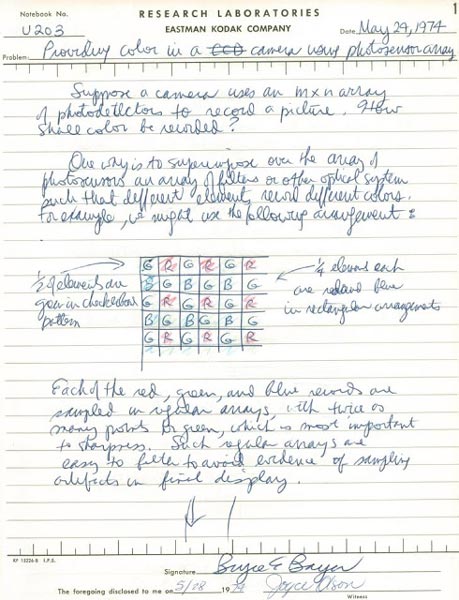 1
Notebook No. RESEARCH LABORATORIES
U203 EASTMAN KODAK COMPANY Date May 29, 1974
Problem: Providing color in a CCD camera using photosensor array
Suppose a camera uses an m×n array
of photodetectors to record a picture. How
shall color be recorded?
One way is to superimpose over the array of
photosensors an array of filters or other optical system
such that different elements record different colors.
For example, we might use the following arrangement:
G R G R G R
B G B G B G
G R G R G R
B G B G B G
G R G R G R
1/2 of elements are
green in checkerboard
pattern
1/4 elements each
are red and blue
in rectangular arrangements
Each of the red, green, and blue records are
sampled in regular arrays, with twice as
many points for green, which is most important
to sharpness. Such regular arrays are
easy to filter to avoid evidence of sampling
artifacts in final display.
KP 15226-B I.P.S.
Signature Bryce E Bayer
The foregoing disclosed to me on 5/28 1974 Joyce Olson
Witness